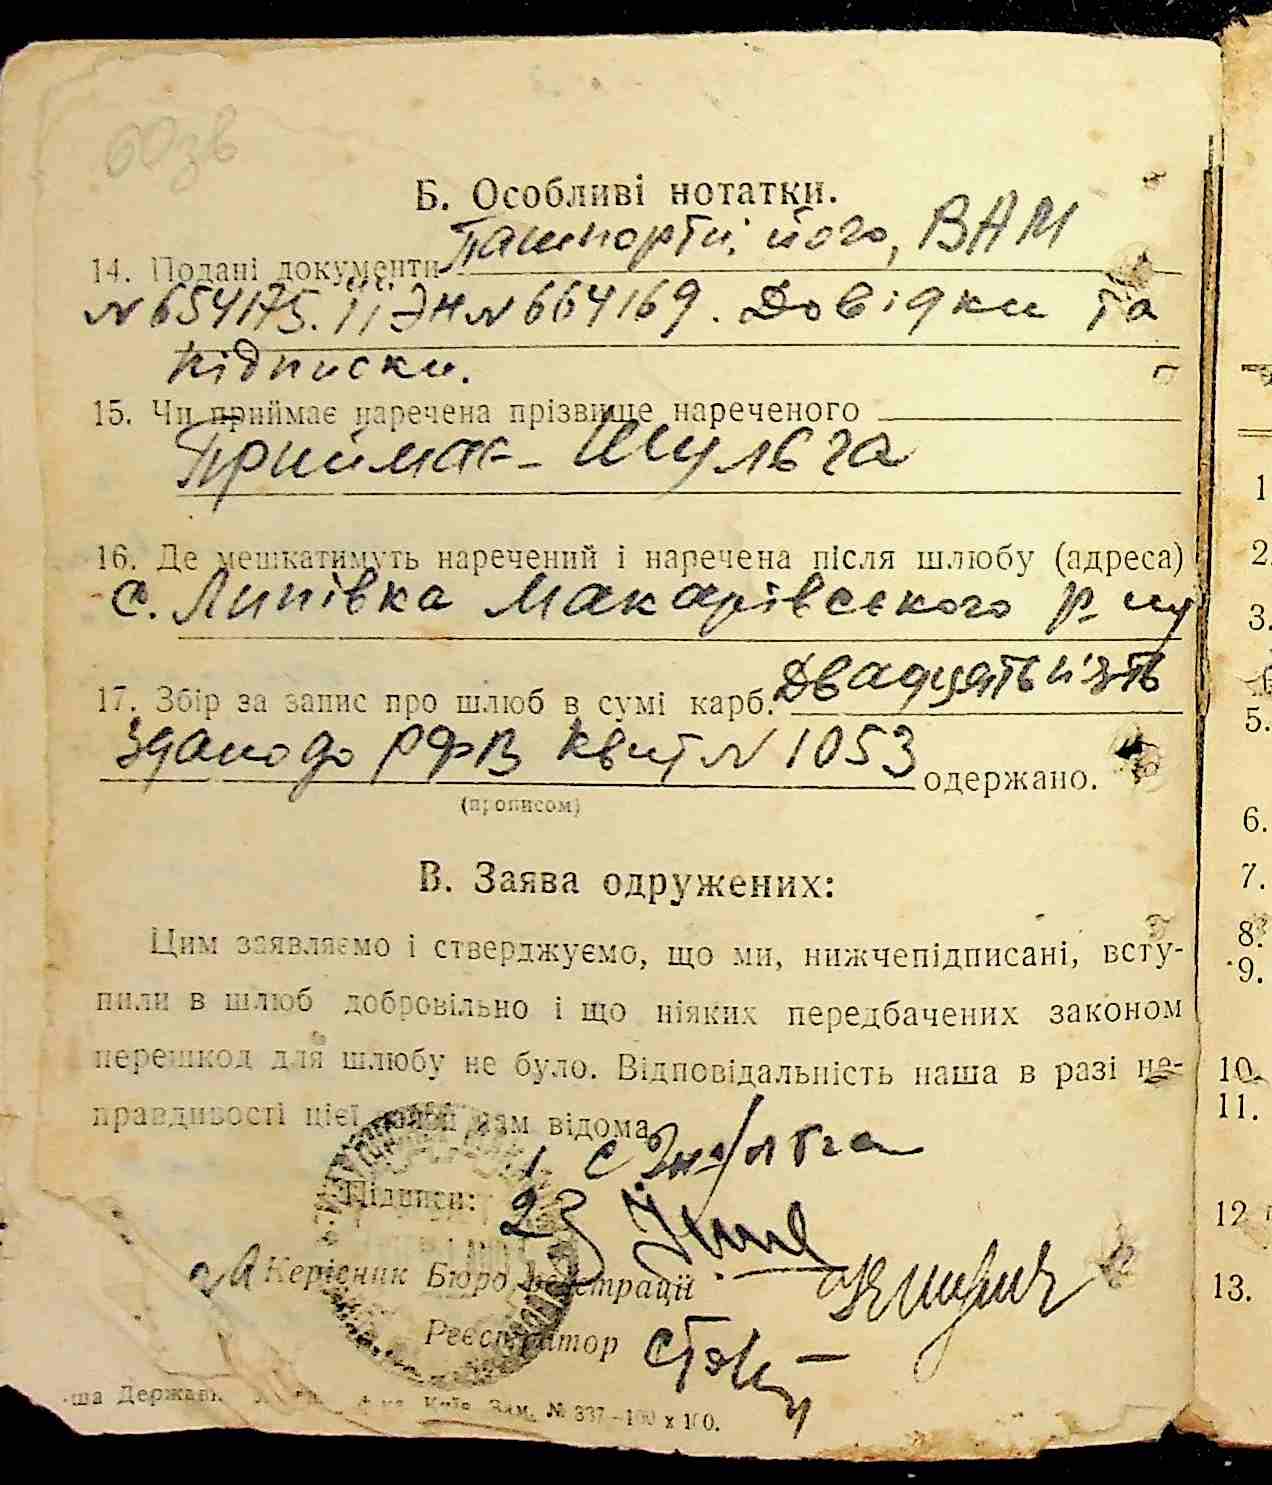 Б. Особливі нотатки.
14. Подані документи Пашпорти: його, ВАМ
№ 654175. її ЭН № 664169. Довідки та
підписки.
15. Чи приймає наречена прізвище нареченого
Приймає - Шульга
16. Де мешкатимуть наречений і наречена після шлюбу (адреса)
с. Липівка Макарівського р-ну
17. Збір за запис про шлюб в сумі карб. Двадцять п'ять
здано до РФВ квит № 1053 одержано.
(прописом)
В. Заява одружених:
Цим заявляємо і стверджуємо, що ми, нижчепідписані, всту-
пили в шлюб добровільно і що ніяких передбачених законом
перешкод для шлюбу не було. Відповідальність наша в разі не-
правдивості цієї заяви нам відома.
Підписи: 1
2
за Керівник Бюро реєстрації
Реєстратор
Київ. Зам. № 337—100 x 100.
1
2.
3.
5.
6.
7.
8.
9.
10.
11.
12
13.